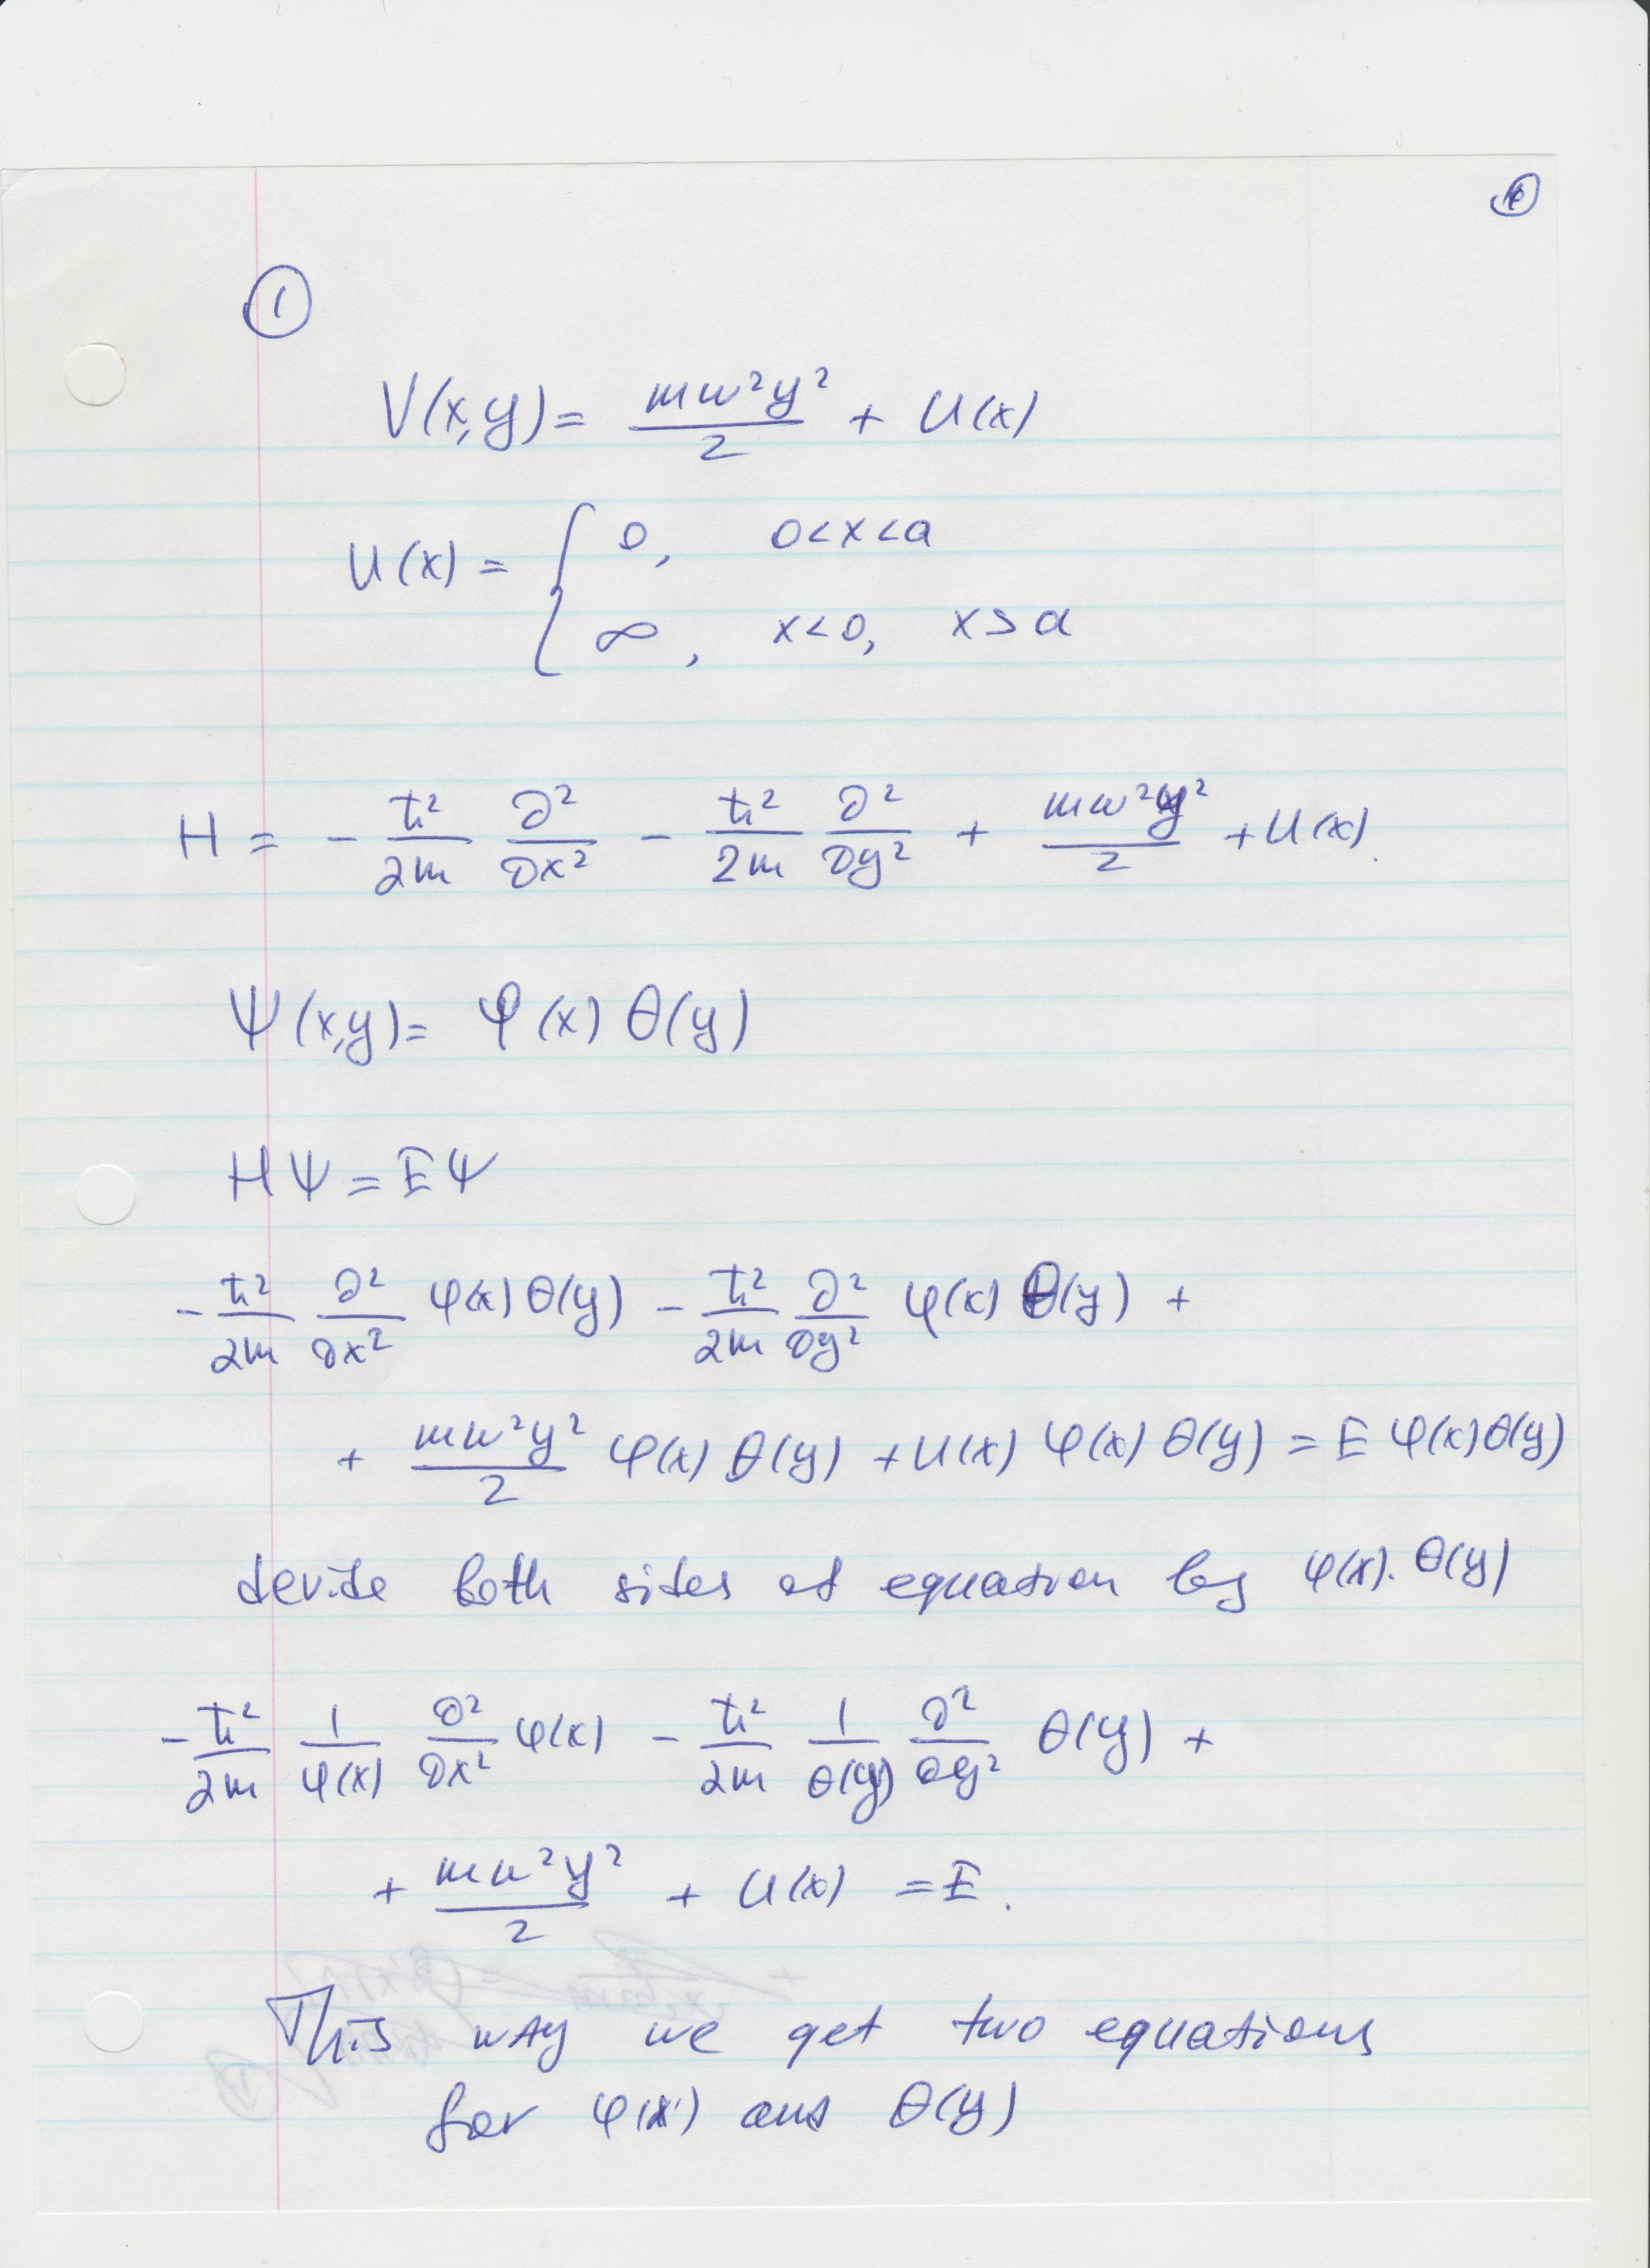 ①
①
V(x,y) = mω²y²/2 + U(x)
U(x) = { 0, 0<x<a
∞, x<0, x>a
H = - ħ²/2m ∂²/∂x² - ħ²/2m ∂²/∂y² + mω²y²/2 + U(x).
Ψ(x,y) = φ(x) θ(y)
HΨ = EΨ
- ħ²/2m ∂²/∂x² φ(x) θ(y) - ħ²/2m ∂²/∂y² φ(x) θ(y) +
+ mω²y²/2 φ(x) θ(y) + U(x) φ(x) θ(y) = E φ(x) θ(y)
devide both sides of equation by φ(x)·θ(y)
- ħ²/2m 1/φ(x) ∂²/∂x² φ(x) - ħ²/2m 1/θ(y) ∂²/∂y² θ(y) +
+ mω²y²/2 + U(x) = E.
This way we get two equations
for φ(x) and θ(y)